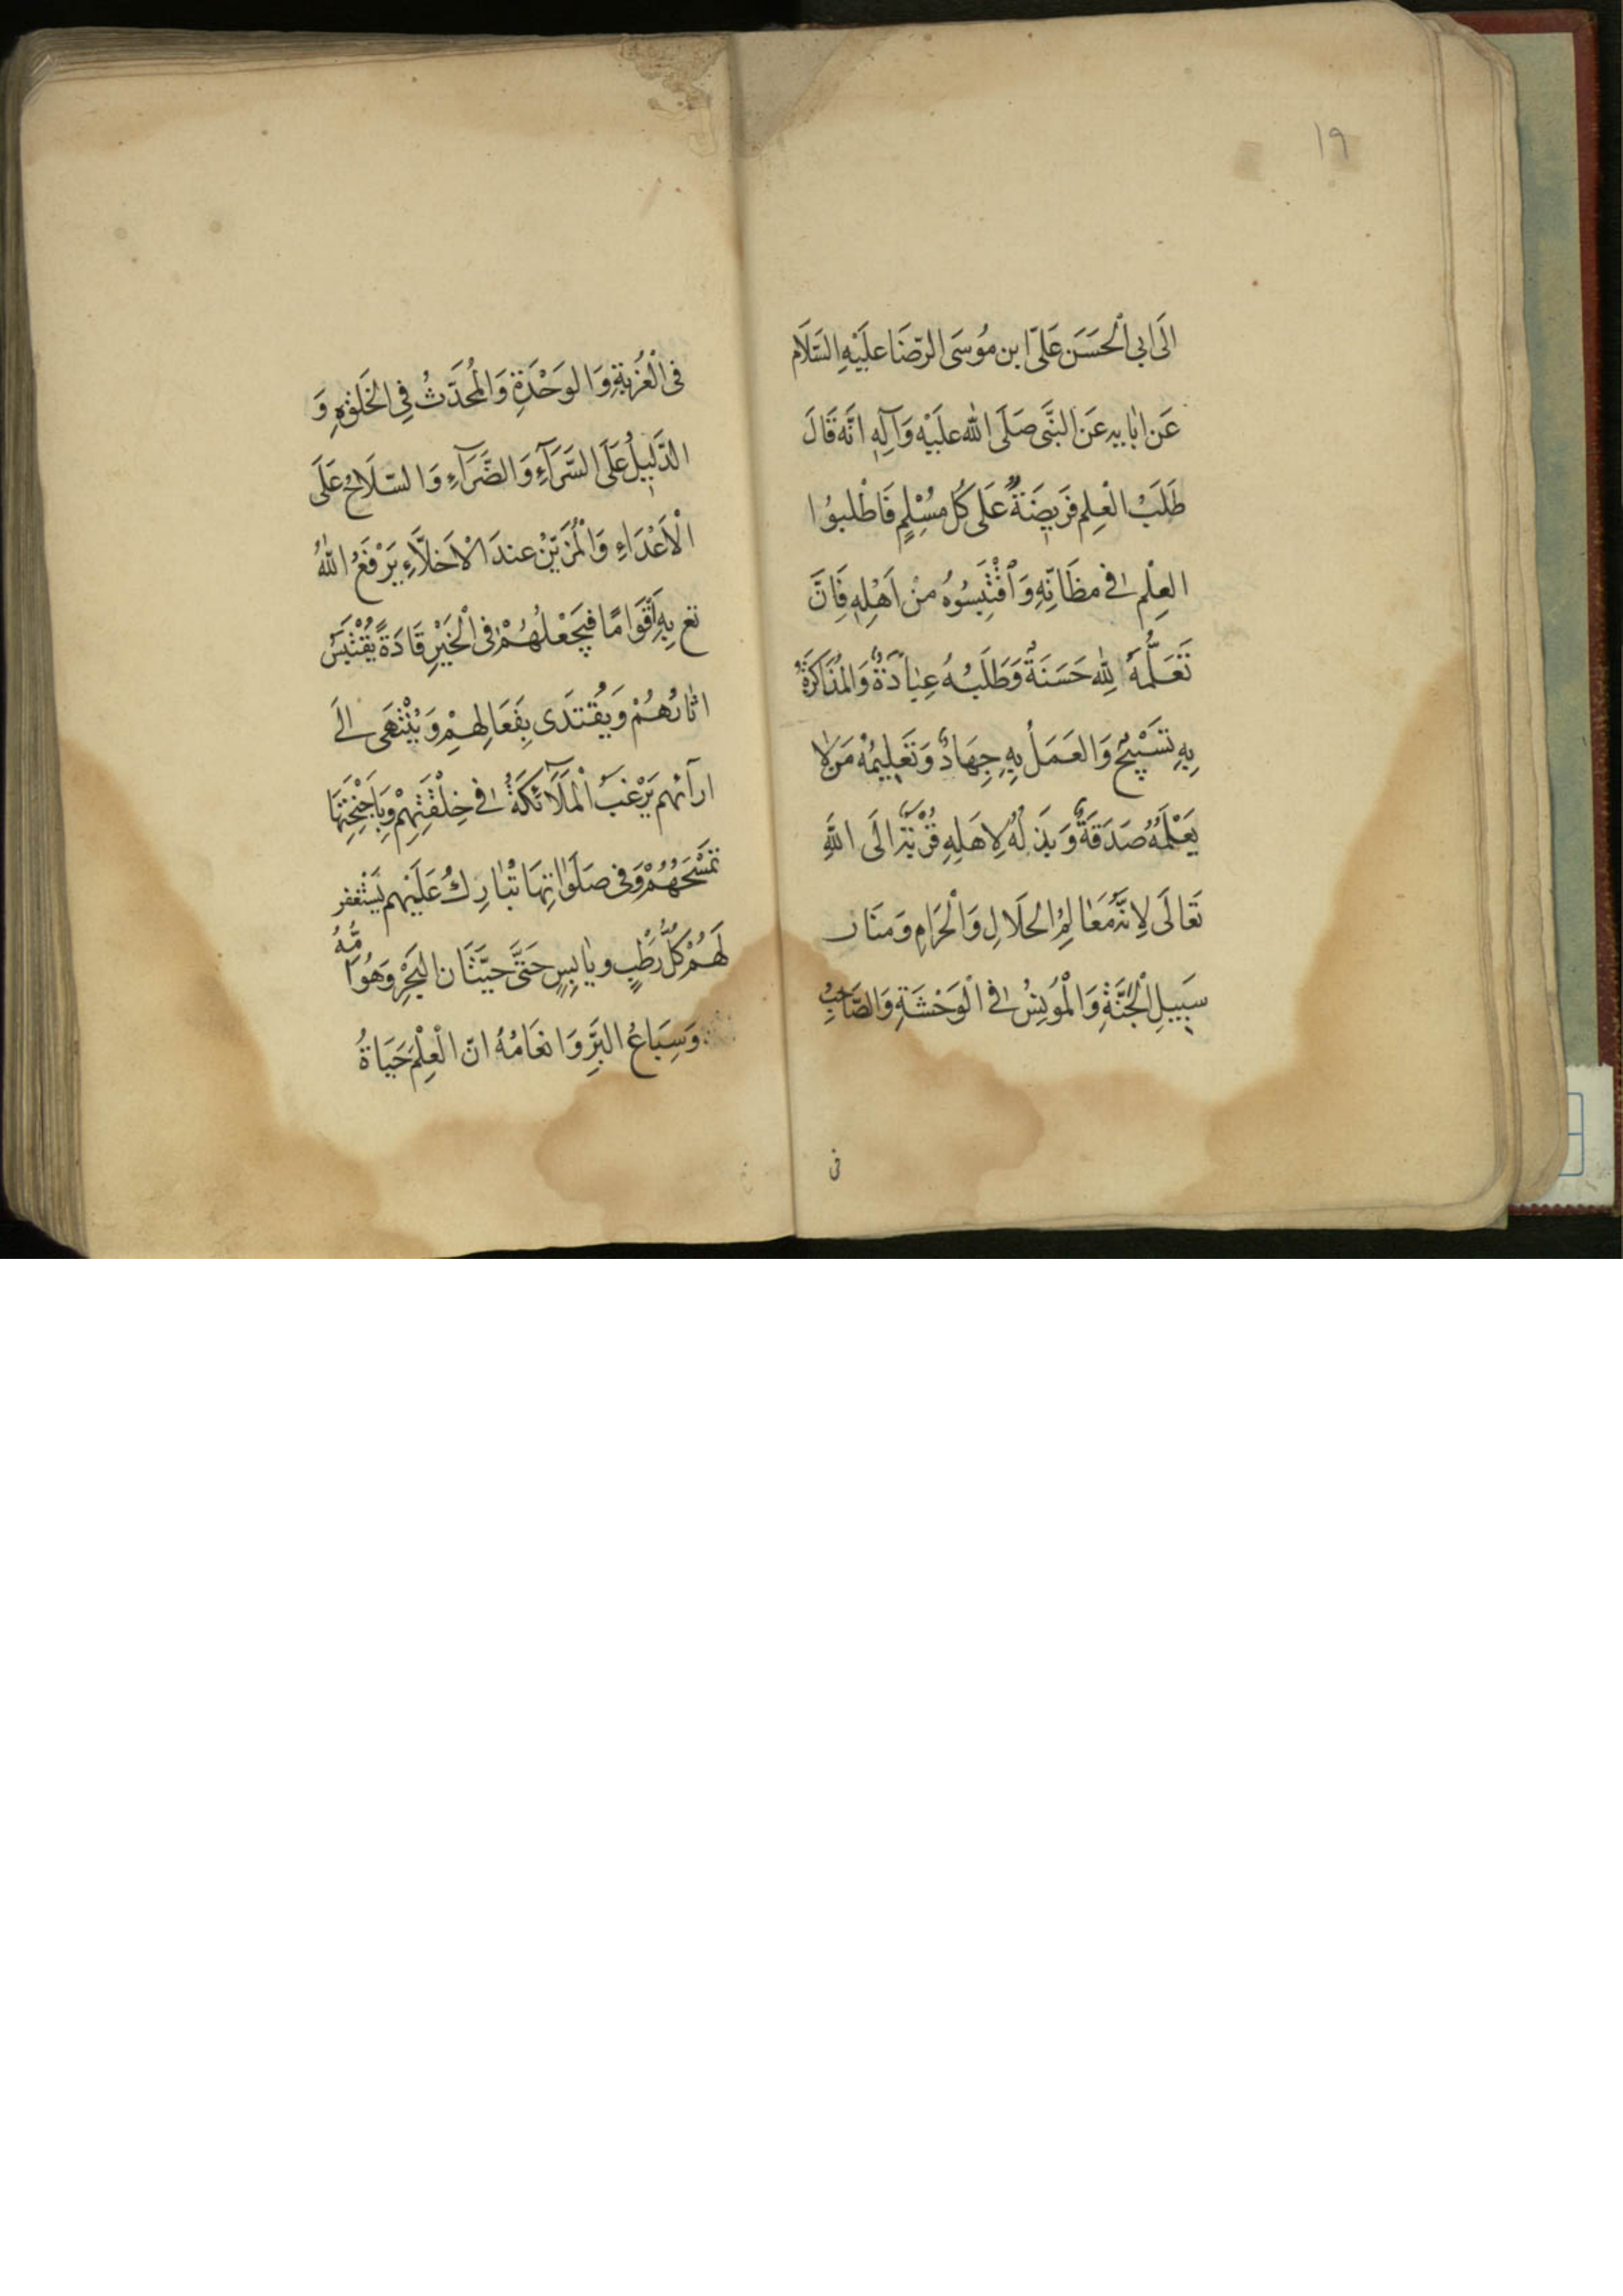 ١٩
الَى ابى الْحَسَن عَلىّ ابن مُوسَى الرّضَا علَيْهِ السَّلَام
عَن ابٰايهِ عَن النَّبَى صَلَى الله علَيْه وَآلِهِ انَّه قَالَ
طَلَبُ الْعِلِم فَريضَةٌ عَلى كُل مُسْلِمٍ فَاطْلبوُا
العِلْم فى مظَانِّهِ وَاقْتَبِسُوهُ منْ اَهْلِهِ فَاِنَّ
تَعَلُّمَهُ لِلّٰه حَسَنَةٌ وَطَلَبُهُ عِبٰادَةٌ وَالْمُذَاكَرَةُ
بِهِ تَسْبيٌح وَالعَمَلُ بِهِ جِهَادٌ وَتَعْلِيمُهُ مَن لا
يَعْلَمُهُ صَدَقَةٌ وَبَذلُهُ لِاهَلِهِ قُرْبَةٌ الَى اللّٰهِ
تَعَالَى لاِنَّهُ مَعٰالِمُ الحَلَالِ وَالْحَرَامِ وَمنَار
سَبيلِ الْجَنَّةِ وَالْمُونِسُ فى الْوَحْشَةِ وَالصَّاحِبُ
فى
فى الْغُربَةِ وَالوَحْدَةِ وَالْمُحَدّثُ فِى الخَلَوْهِ وَ
الدَّلِيلُ عَلَى السَّرَآءِ وَالضَّرَآءِ وَالسّلَاحُ عَلَى
الْاَعْدَاءِ وَالْمُزَيّنْ عندَ الْاَخلّاءِ يَرْفَعُ اللّٰهُ
تع بِهِ اَقَوامًا فيَجْعَلُهُمْ فى الْخَيْرِ قَادَةً يُقْتَبَسُ
اثٰارُهُمْ وَيُقْتدَى بِفَعَالِهِمْ وَيُنْتَهَى الَى
ارآئهم يَرْغبُ الْمَلَائكَةُ فى خِلْقَتِهِمْ وَباَجْنِحَتِهَا
تمَسْحَهُمْ وَفى صَلَوٰاتِهَا تُبٰارِكُ عَلَيْهم يَسْتَغفر
لَهُمْ كُلُّ رَطْبٍ ويٰابِسٍ حَتَّى حيّتَان البَحْرِ وَهَوُامُّهُ
وَسِبَاعُ البَرِّ وَانعَامُهُ انّ الْعِلْمَ حَيَاةُ